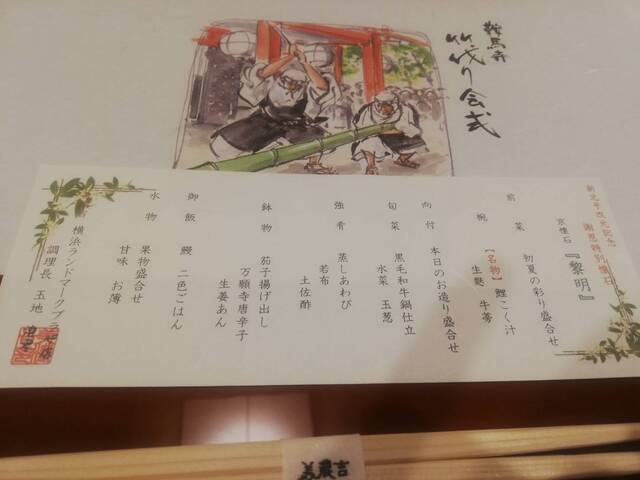 鞍馬寺
竹伐り会式
新元号改元記念
謝恩特別懐石
京懐石『黎明』
前菜 初夏の彩り盛合せ
椀 【名物】鯉こく汁
生麩 牛蒡
向付 本日のお造り盛合せ
旬菜 黒毛和牛鍋仕立
水菜 玉葱
強肴 蒸しあわび
若布
土佐酢
鉢物 茄子揚げ出し
万願寺唐辛子
生姜あん
御飯 鰻 二色ごはん
水物 果物盛合せ
甘味 お薄
横浜ランドマークプラザ店
調理長 玉地
美濃吉